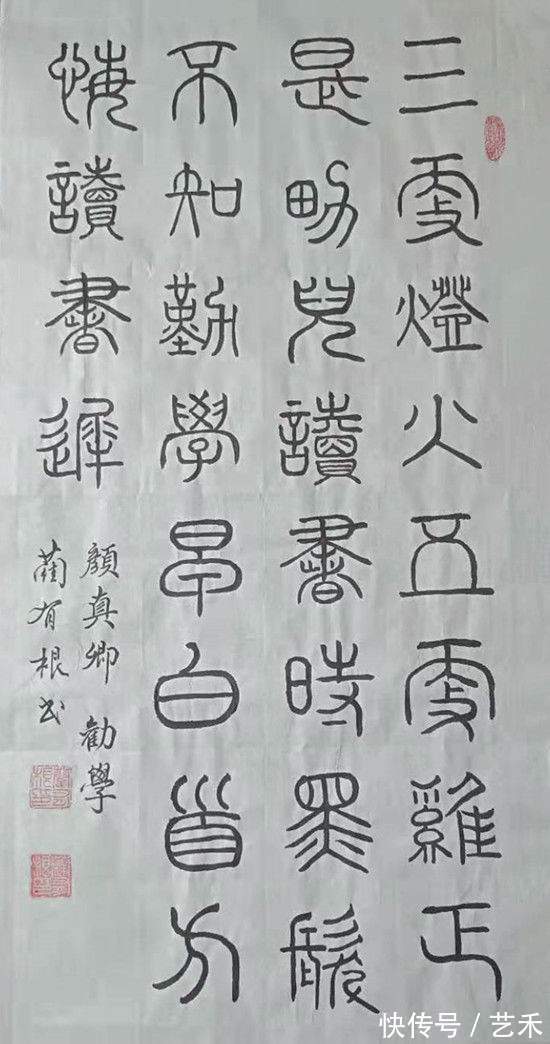 三更燈火五更雞正
是男兒讀書時黑髮
不知勤學早白首方
悔讀書遲
顏真卿 勸學
蔺有根书
快传号 / 艺禾